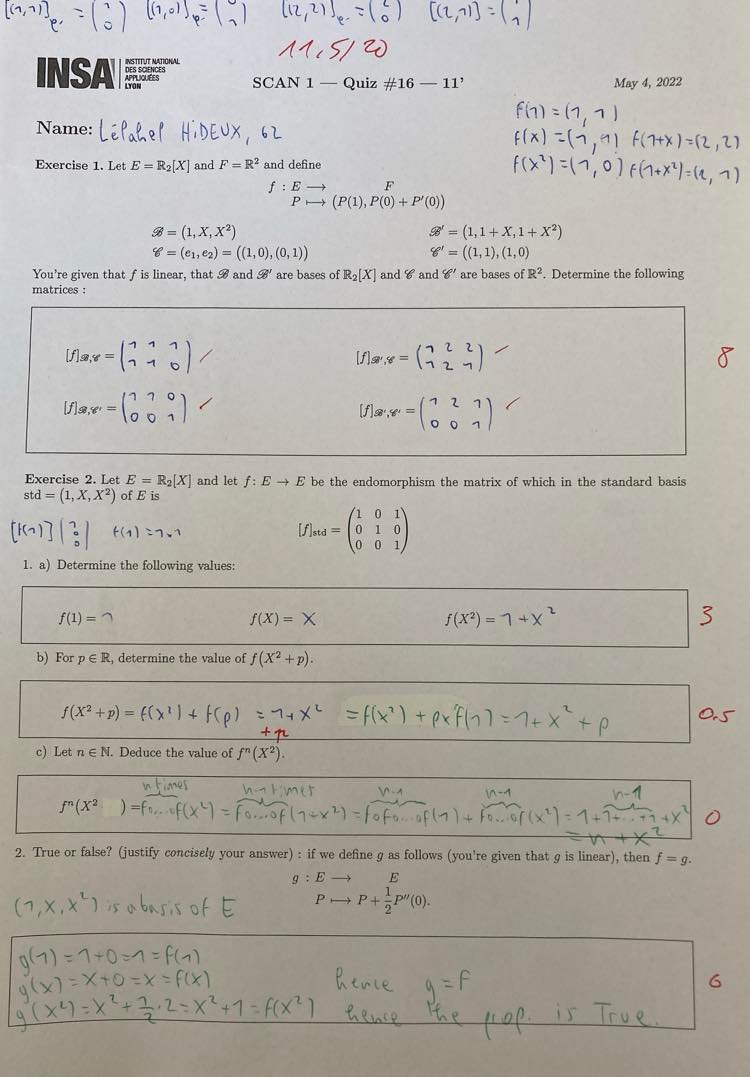 [(1,1)]e' = (1 0) [(1,0)]e' = (0 1) [(2,2)]e' = (2 0) [(2,1)] = (1 1)
11,5/20
INSA INSTITUT NATIONAL DES SCIENCES APPLIQUÉES LYON
SCAN 1 — Quiz #16 — 11' May 4, 2022
f(1) = (1, 1)
Name: Lélahel HiDEUX, 62
f(x) = (1, 1) f(1+x) = (2, 2)
f(x²) = (1, 0) f(1+x²) = (2, 1)
Exercise 1. Let E = ℝ₂[X] and F = ℝ² and define
f : E ⟶ F
P ⟼ (P(1), P(0) + P'(0))
ℬ = (1, X, X²) ℬ' = (1, 1 + X, 1 + X²)
𝒞 = (e₁, e₂) = ((1, 0), (0, 1)) 𝒞' = ((1, 1), (1, 0)
You're given that f is linear, that ℬ and ℬ' are bases of ℝ₂[X] and 𝒞 and 𝒞' are bases of ℝ². Determine the following
matrices :
[f]ℬ,𝒞 = (1 1 1 / 1 1 0) [f]ℬ',𝒞 = (1 2 2 / 1 2 1) 8
[f]ℬ,𝒞' = (1 1 0 / 0 0 1) [f]ℬ',𝒞' = (1 2 1 / 0 0 1)
Exercise 2. Let E = ℝ₂[X] and let f: E → E be the endomorphism the matrix of which in the standard basis
std = (1, X, X²) of E is
[f(1)] (1 0 0) f(1) = 1.1
[f]std = (1 0 1 / 0 1 0 / 0 0 1)
1. a) Determine the following values:
f(1) = 1 f(X) = X f(X²) = 1 + X² 3
b) For p ∈ ℝ, determine the value of f(X² + p).
f(X² + p) = f(X²) + f(p) = 1 + X² +p = f(x²) + p×f(1) = 1 + X² + p 0.5
c) Let n ∈ ℕ. Deduce the value of fⁿ(X²).
n times n-1 times n-1 n-1 n-1
fⁿ(X² ) = fo...of(x²) = fo...of(1+x²) = fofo...of(1) + fo...of(x²) = 1+1+...+1+x² 0
= n + x²
2. True or false? (justify concisely your answer) : if we define g as follows (you're given that g is linear), then f = g.
g : E ⟶ E
P ⟼ P + 1/2 P''(0).
(1, X, X²) is a basis of E
g(1) = 1+0 = 1 = f(1)
g(x) = X+0 = x = f(X) hence g = f 6
g(X²) = X² + 1/2 · 2 = X² + 1 = f(X²) hence the prop. is True.